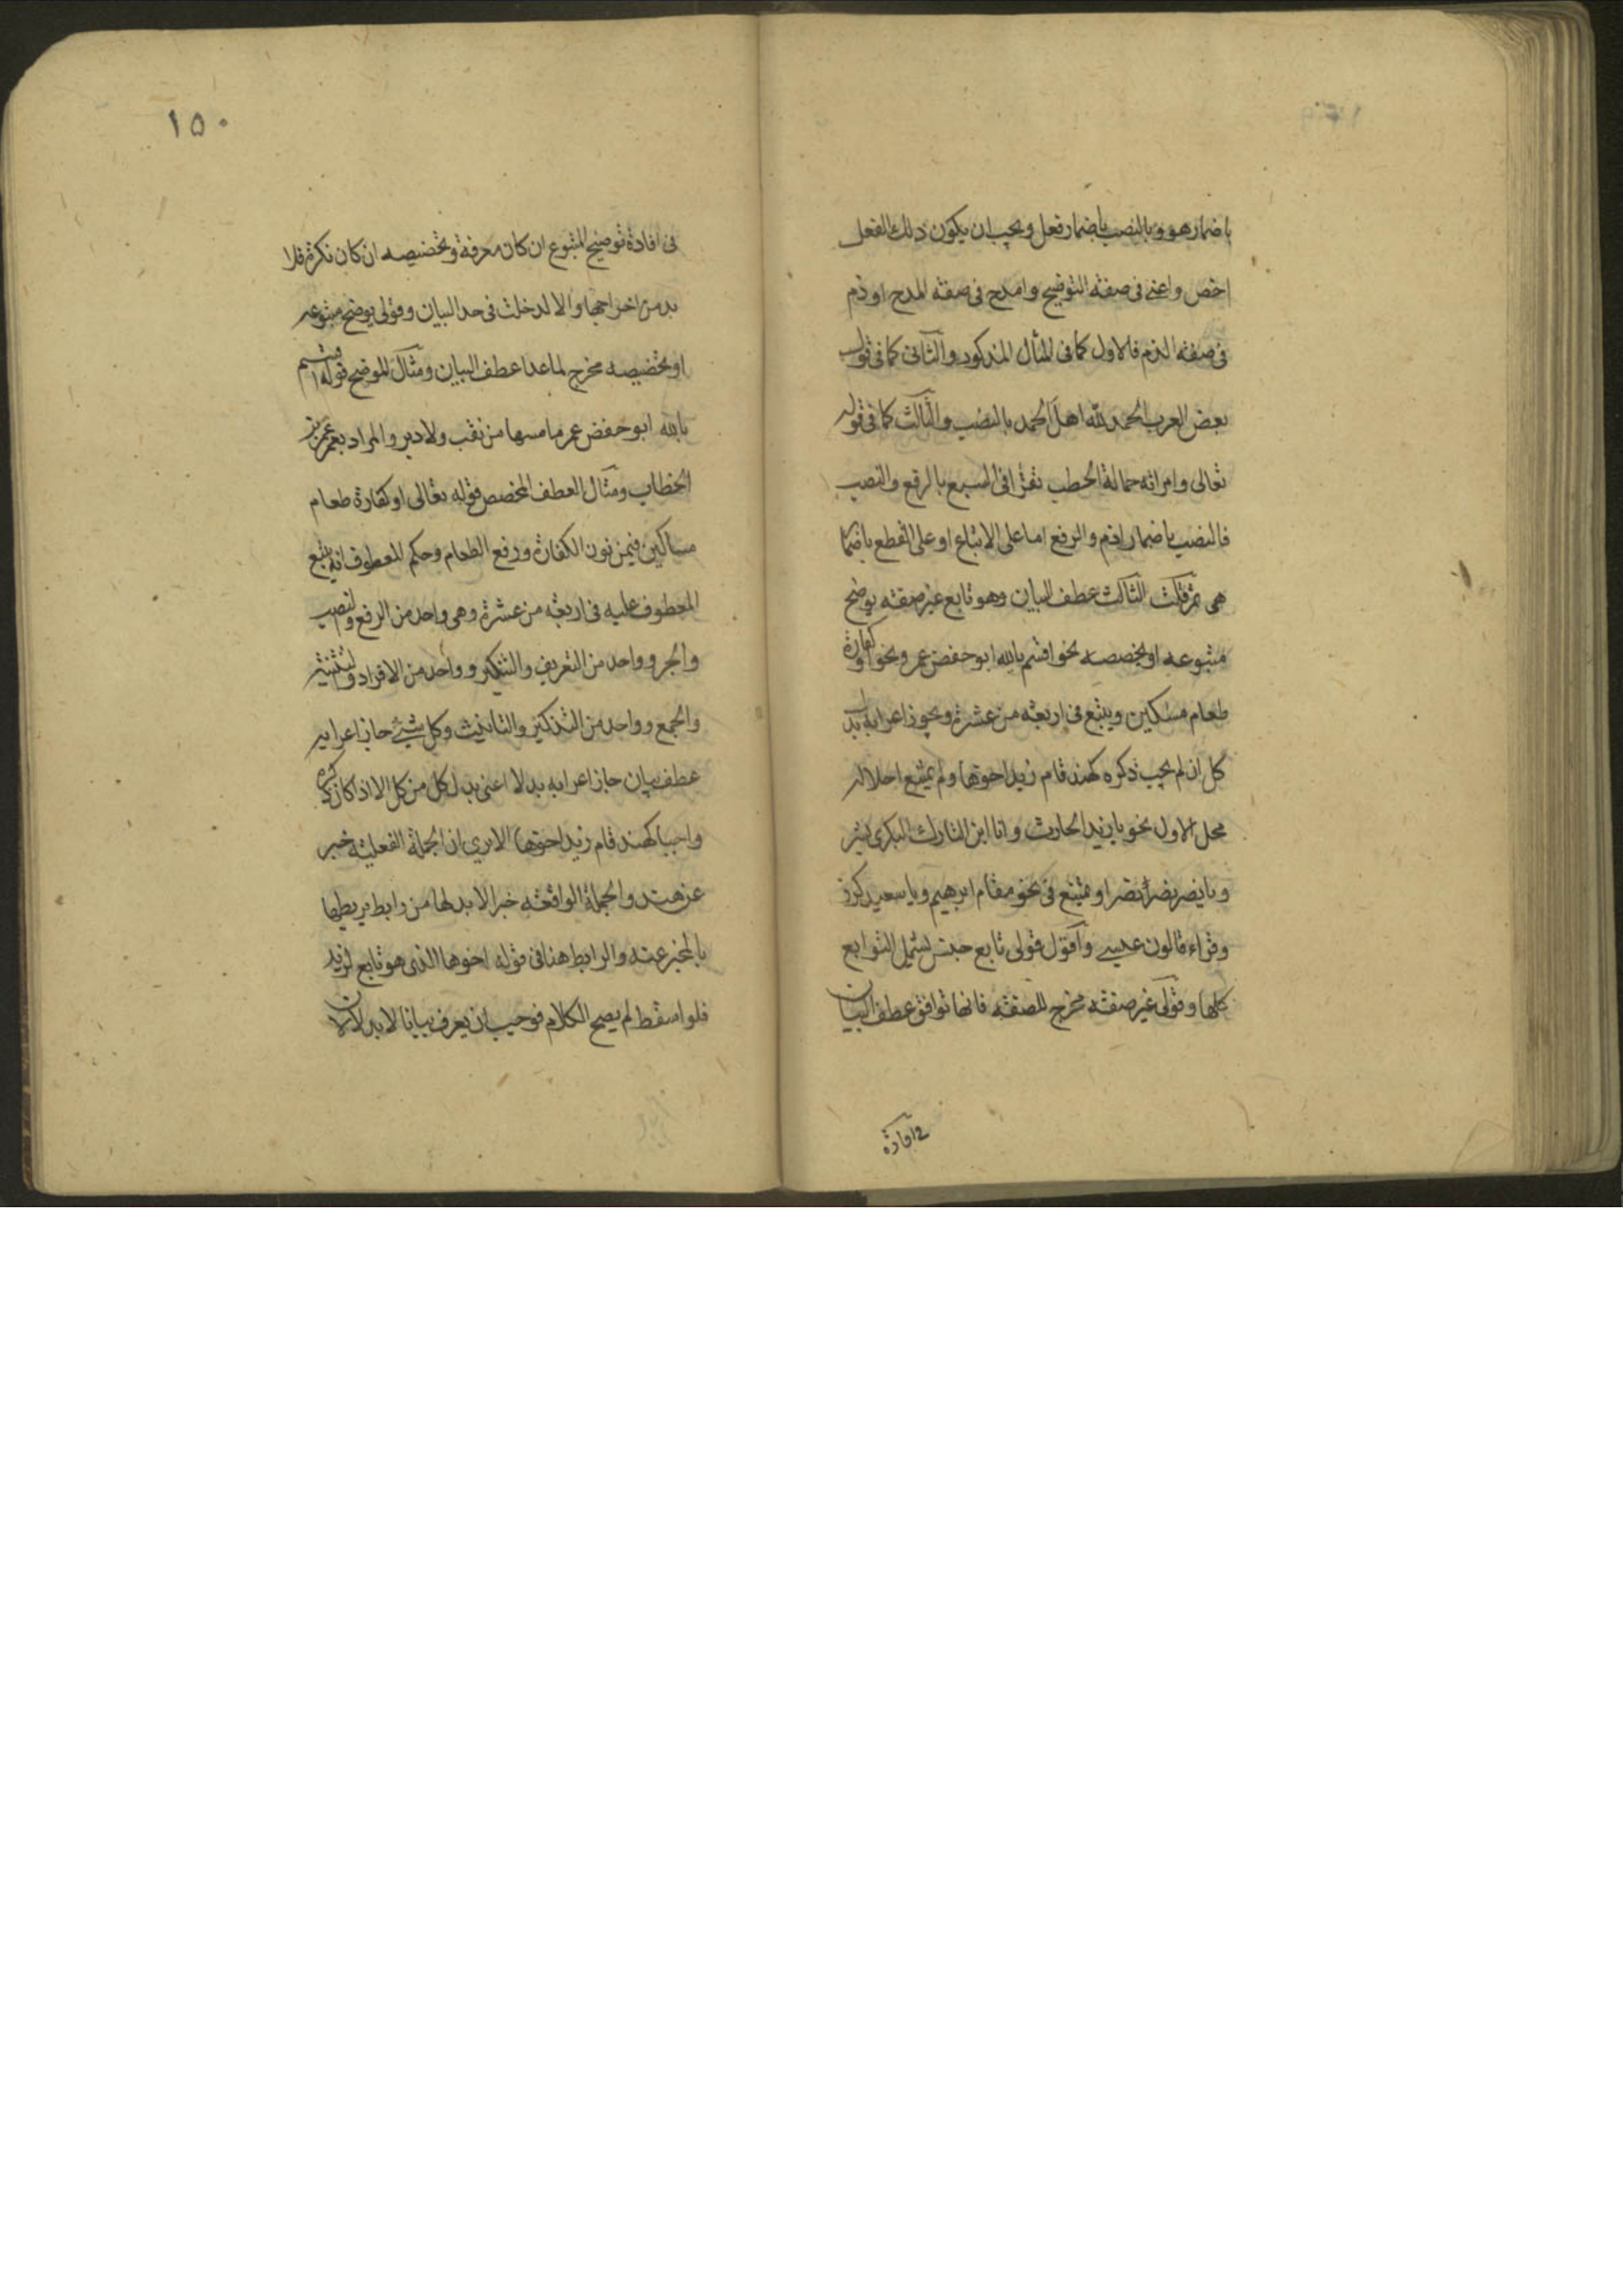 باضمار هو وبالنصب باضمار فعل ويجب ان يكون ذلك الفعل
اخص واعني في صفة التوضيح وامدح في صفة المدح او ذم
في صفة الذم فالاول كما في المثال المذكور والثاني كما في قول
بعض العرب الحمد لله اهل الحمد بالنصب والثالث كما في قوله
تعالى وامراته حمالة الحطب تقرا في السبع بالرفع والنصب
فالنصب باضمار اذم والرفع اما على الاتباع او على القطع باضمار
هي ثم قلت الثالث عطف البيان وهو تابع غير صفة يوضح
متبوعه او يخصصه نحو اقسم بالله ابو حفص عمر ونحو او كفارة
طعام مسكين ويتبع في اربعة من عشرة ويجوز اعرابه بدل
كل ان لم يجب ذكره كهند قام زيد اخوها ولم يمتنع احلاله
محل الاول نحو يا زيد الحارث وانا ابن التارك البكري بشر
ويا نصر نصر نصرا ويمتنع في نحو مقام ابرهيم ويا سعيد كرز
وقراء قالون عيسى واقول قولي تابع جنس يشمل التوابع
كلها وقولي غير صفة مخرج للصفة فانها توافق عطف البيان
في افادة
١٥٠
في افادة توضيح المتبوع ان كان معرفة وتخصيصه ان كان نكرة فلا
بد من اخراجها والا لدخلت في حد البيان وقولي يوضح متبوعه
او تخصيصه مخرج لما عدا عطف البيان ومثال الموضح قوله اقسم
بالله ابو حفص عمر ما مسها من نقب ولا دبر والمراد بعمر عمر بن
الخطاب ومثال العطف المخصص قوله تعالى او كفارة طعام
مساكين فيمن نون الكفارة ورفع الطعام وحكم المعطوف انه يتبع
المعطوف عليه في اربعة من عشرة وهي واحد من الرفع والنصب
والجر وواحد من التعريف والتنكير وواحد من الافراد والتثنية
والجمع وواحد من التذكير والتانيث وكل شيء جاز اعرابه
عطف بيان جاز اعرابه بدلا اعني بدل كل من كل الا اذا كان ذكره
واجبا كهند قام زيد اخوها الا تري ان الجملة الفعلية خبر
عن هند والجملة الواقعة خبرا لا بد لها من رابط يربطها
بالمخبر عنه والرابط هنا في قوله اخوها الذي هو تابع لزيد
فلو اسقط لم يصح الكلام فوجب ان يعرف بيانا لا بدلا لان